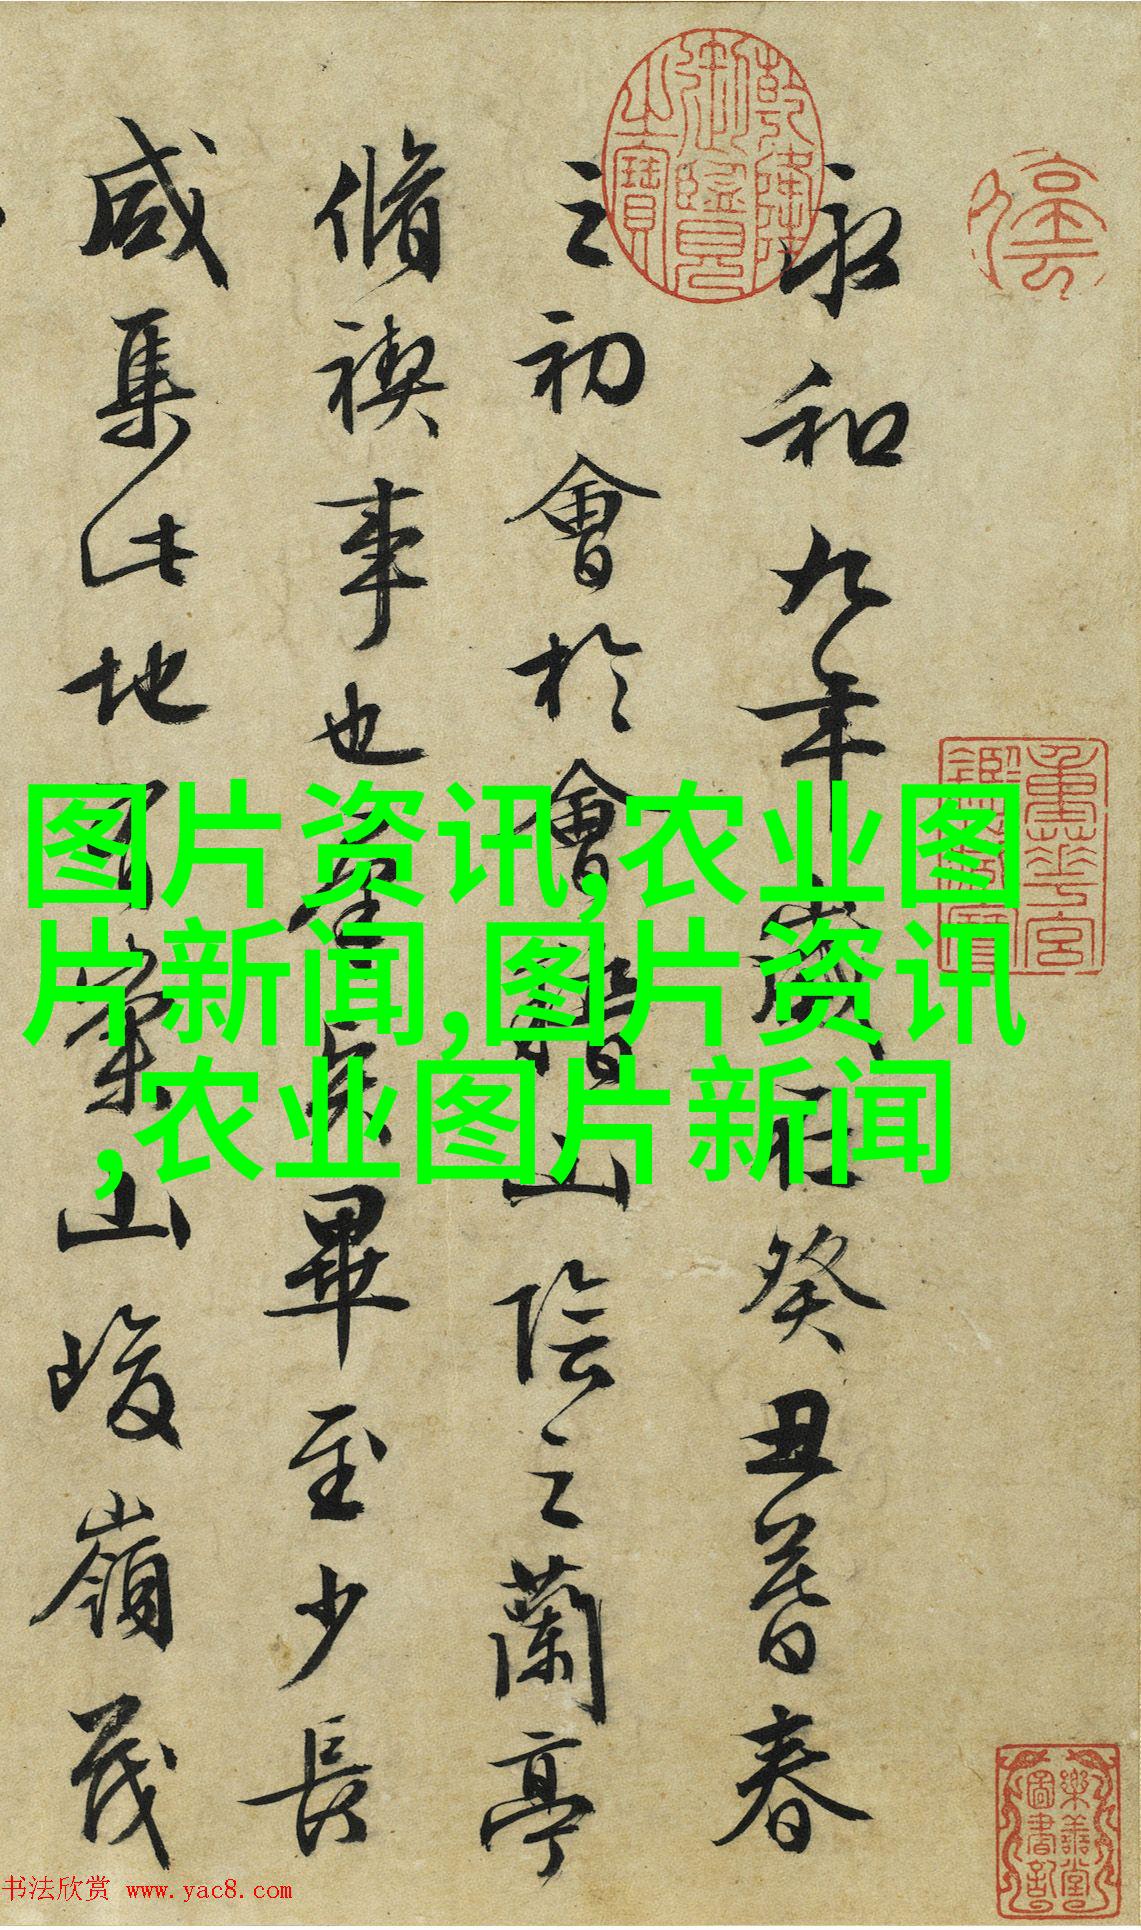 永和九年歲在癸丑暮春
之初會於會稽山陰之蘭亭
脩禊事也羣賢畢至少長
咸集此地有崇山峻嶺茂
图片资讯,农业图
片新闻,图片资讯
,农业图片新闻
乾隆御鑒之寶
樂善堂圖書記
书法欣赏 www.yac8.com